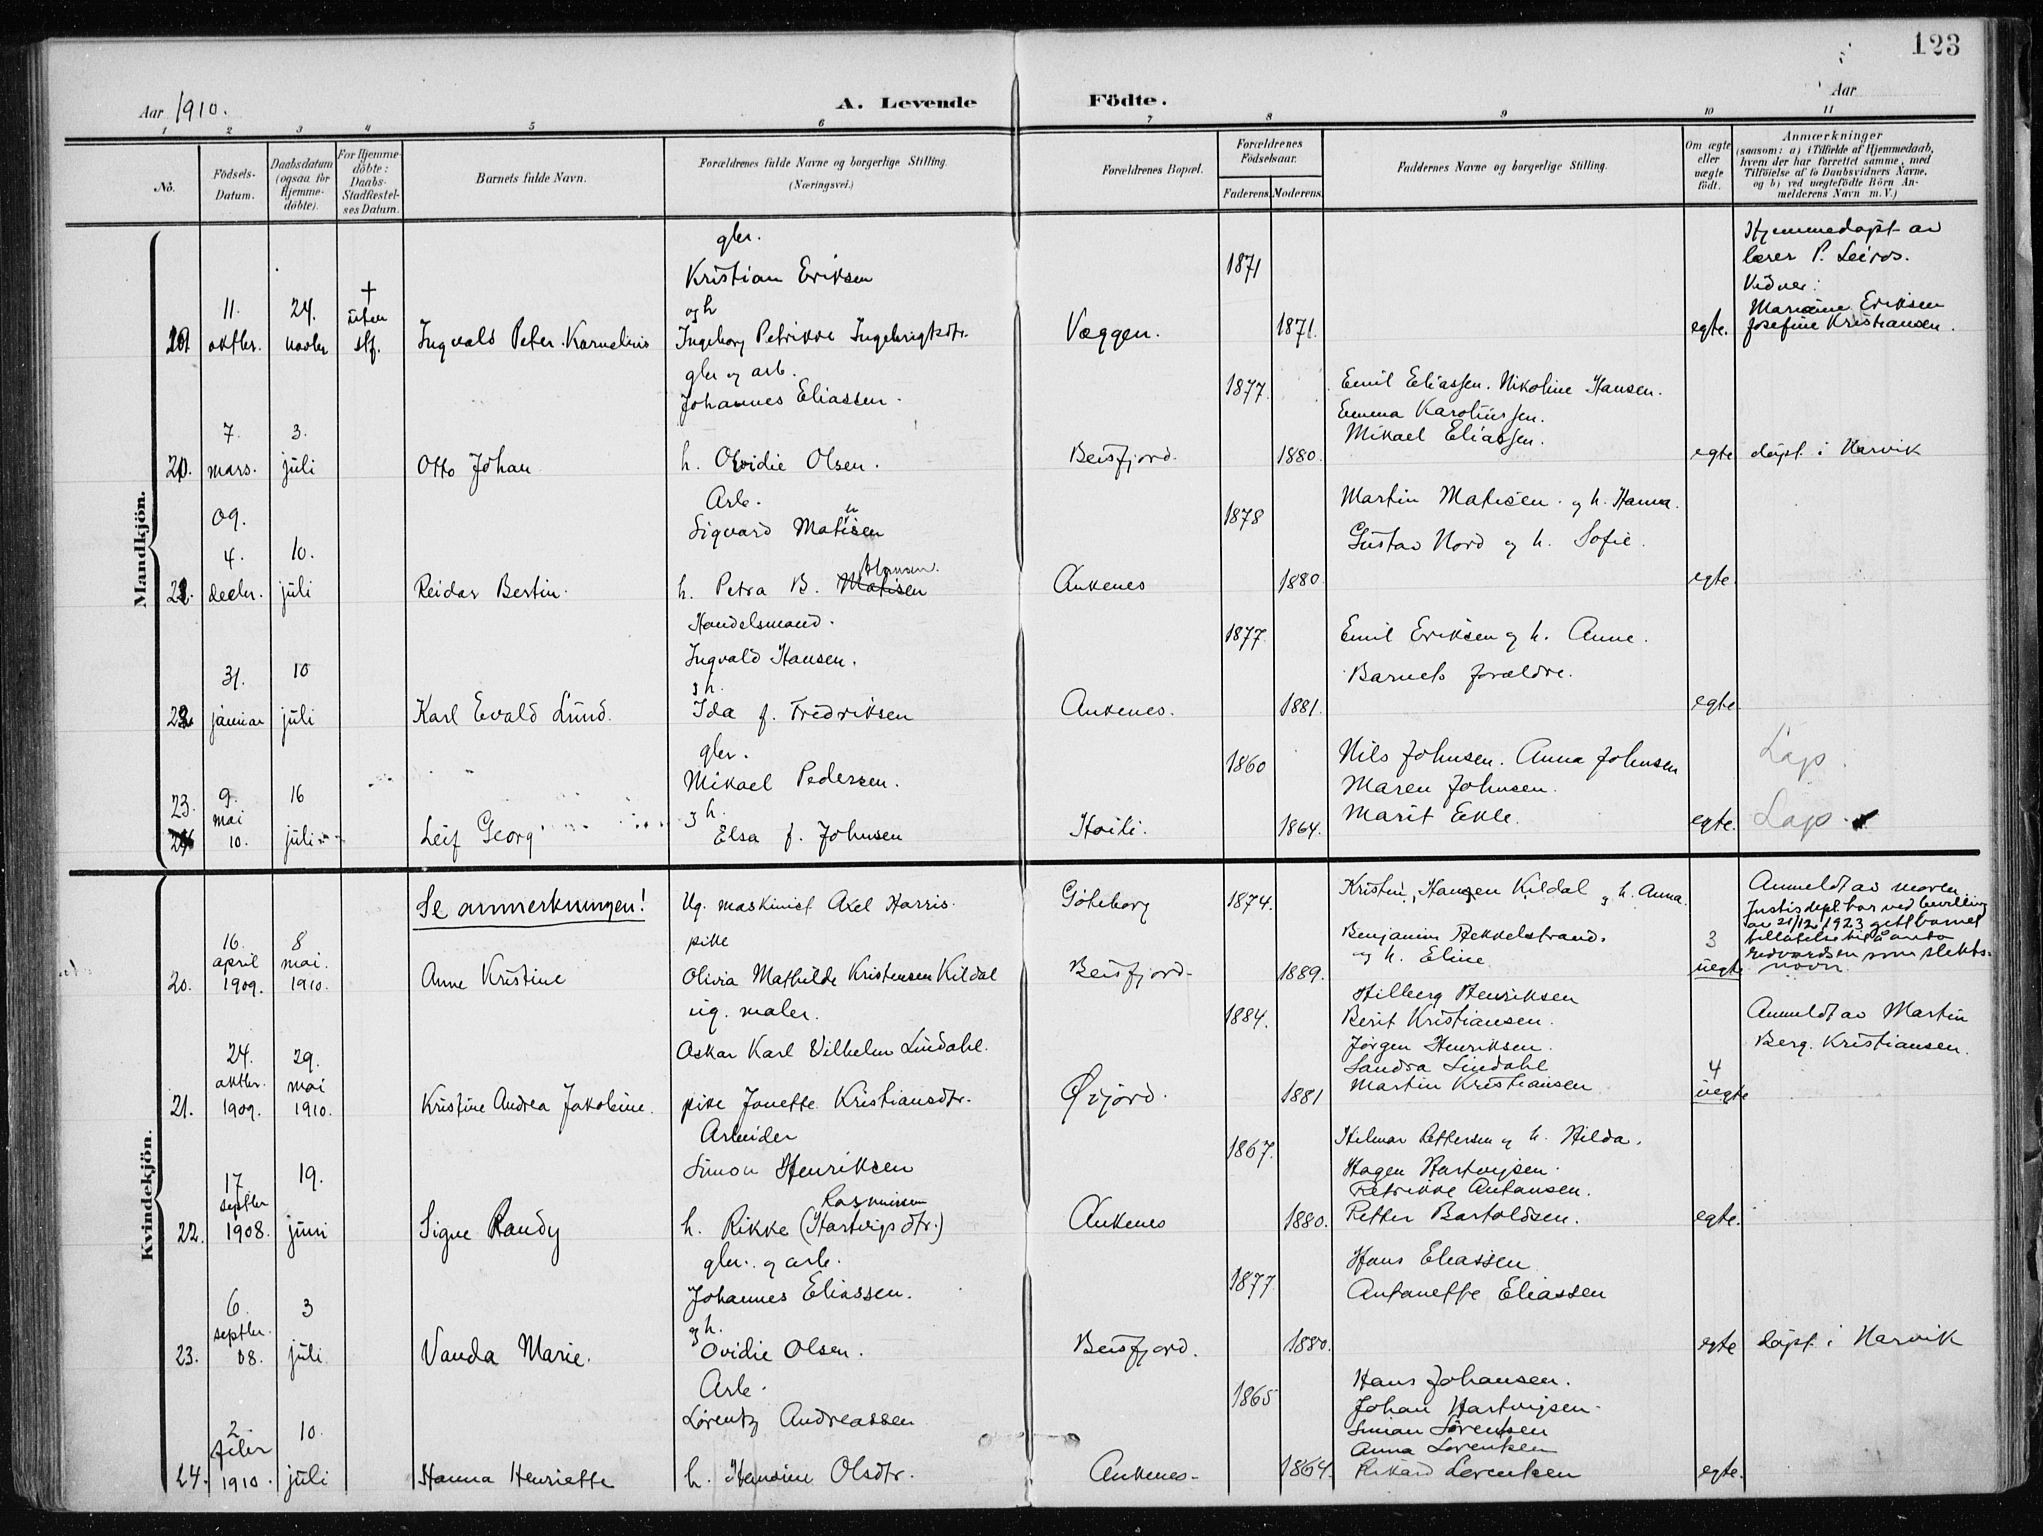 123
Aar 1910.
A. Levende Födte.
Aar
1 2 3 4 5 6 7 8 9 10 11
No.
Födsels-Datum.
Daabsdatum (ogsaa for Hjemme-döbte).
For Hjemme-döbte: Daabs-Stadfæstel-ses Datum.
Barnets fulde Navn.
Forældrenes fulde Navne og borgerlige Stilling.
(Næringsvei.)
Forældrenes Bopæl.
Forældrenes Födselsaar.
Faderens. Moderens.
Faddernes Navne og borgerlige Stilling.
Om ægte eller uægte födt.
Anmærkninger
(saasom: a) i Tilfælde af Hjemmedaab,
hvem der har forrettet samme, med
Tilföielse af to Daabsvidners Navne,
og b) ved uægtefödte Börn An-
melderens Navn m. V.)
Mandkjön.
11. oktbr.
24. novbr
† uten stf.
Ingvald Peter Kornelius
gbr.
Kristian Eriksen
og h
Ingeborg Petrikke Ingebrigtsdtr.
Væggen.
1871
1871.
egte.
Hjemmedøpt av
lærer P. Leiros.
Vidner:
Marianne Eriksen
Josefine Kristiansen.
20.
7. mars.
3. juli
Otto Johan
gbr og arb.
Johannes Eliassen.
h. Ovidie Olsen.
Beisfjord.
1877.
1880.
Emil Eliassen. Nikoline Hansen.
Emma Karoliussen.
Mikael Eliassen.
egte
døpt i Narvik
09.
4. decbr.
10. juli
Reidar Bertin.
Arb.
Sigvard Matisen
h. Petra B. Matisen
Ankenes
1878
1880
Martin Matisen og h. Hanna.
Gustav Nord og h. Sofie.
egte.
31. januar
10 juli
Karl Evald Lund.
Handelsmand.
Ingvald Hansen.
og h.
Ida f. Fredriksen
Ankenes.
1877.
1881.
Emil Eriksen og h. Anne.
Barnets forældre.
egte
23.
9. mai 10.
16 juli
Leif Georg
gbr.
Mikael Pedersen.
og h.
Elsa f. Johnsen
1860
1864.
Nils Johnsen. Anna Johnsen
Maren Johnsen.
Marit
egte.
Lap.
Lap.
Kvindekjön.
20.
16. april 1909.
8 mai. 1910.
Se anmerkningen!
Anne Kristine
Ug. maskinist Axel Harris.
pike
Olivia Mathilde Kristensen Kildal
Göteborg
Beisfjord.
1874.
1889.
Hansen Kildal og h. Anna.
Benjamin Rekkelstrand.
og h. Eline
3
uegte
Anmeldt av moren
Justisdept. har ved bevilling
av 21/12 1923 gitt barnet
tillatelse til å anta
Edvardsen som slekts-
navn.
21.
24. oktbr. 1909.
29. mai 1910.
Kristine Andrea Jakobine.
ug. maler.
Oskar Karl Vilhelm Lindahl.
pike Jonette Kristiansdtr.
1884.
1881
Hilberg Henriksen
Berit Kristiansen.
Jørgen Henriksen.
Sandra Lindahl
Martin Kristiansen
4
uegte
Anmeldt av Martin
Berg. Kristiansen.
22.
17 septbr 1908.
19. juni
Signe Randy
Arbeider
Simon Henriksen
Rasmussen
h. Rikke (Hartvigsdtr.)
Ankenes
1867.
1880.
Hilmar Pettersen og h. Hilda.
Hagen Hartvigsen.
Petrikke Antonsen.
Petter Bartoldsen.
egte.
23.
6. septbr. 08.
3 juli
Vanda Marie.
gbr. og arb.
Johannes Eliassen.
og h.
Ovidie Olsen.
Beisfjord.
1877.
1880.
Hans Eliassen
Antonette Eliassen
egte
døpt i Narvik
24.
2. febr 1910.
10. juli
Hanna Henriette
Arb.
Lorentz Andreassen
h. Hansine Olsdtr.
Ankenes.
1865
1864.
Hans Johansen.
Johan Hartvigsen.
Simon Sørensen
Anna Lorentsen
Rikard Lorentsen
egte.